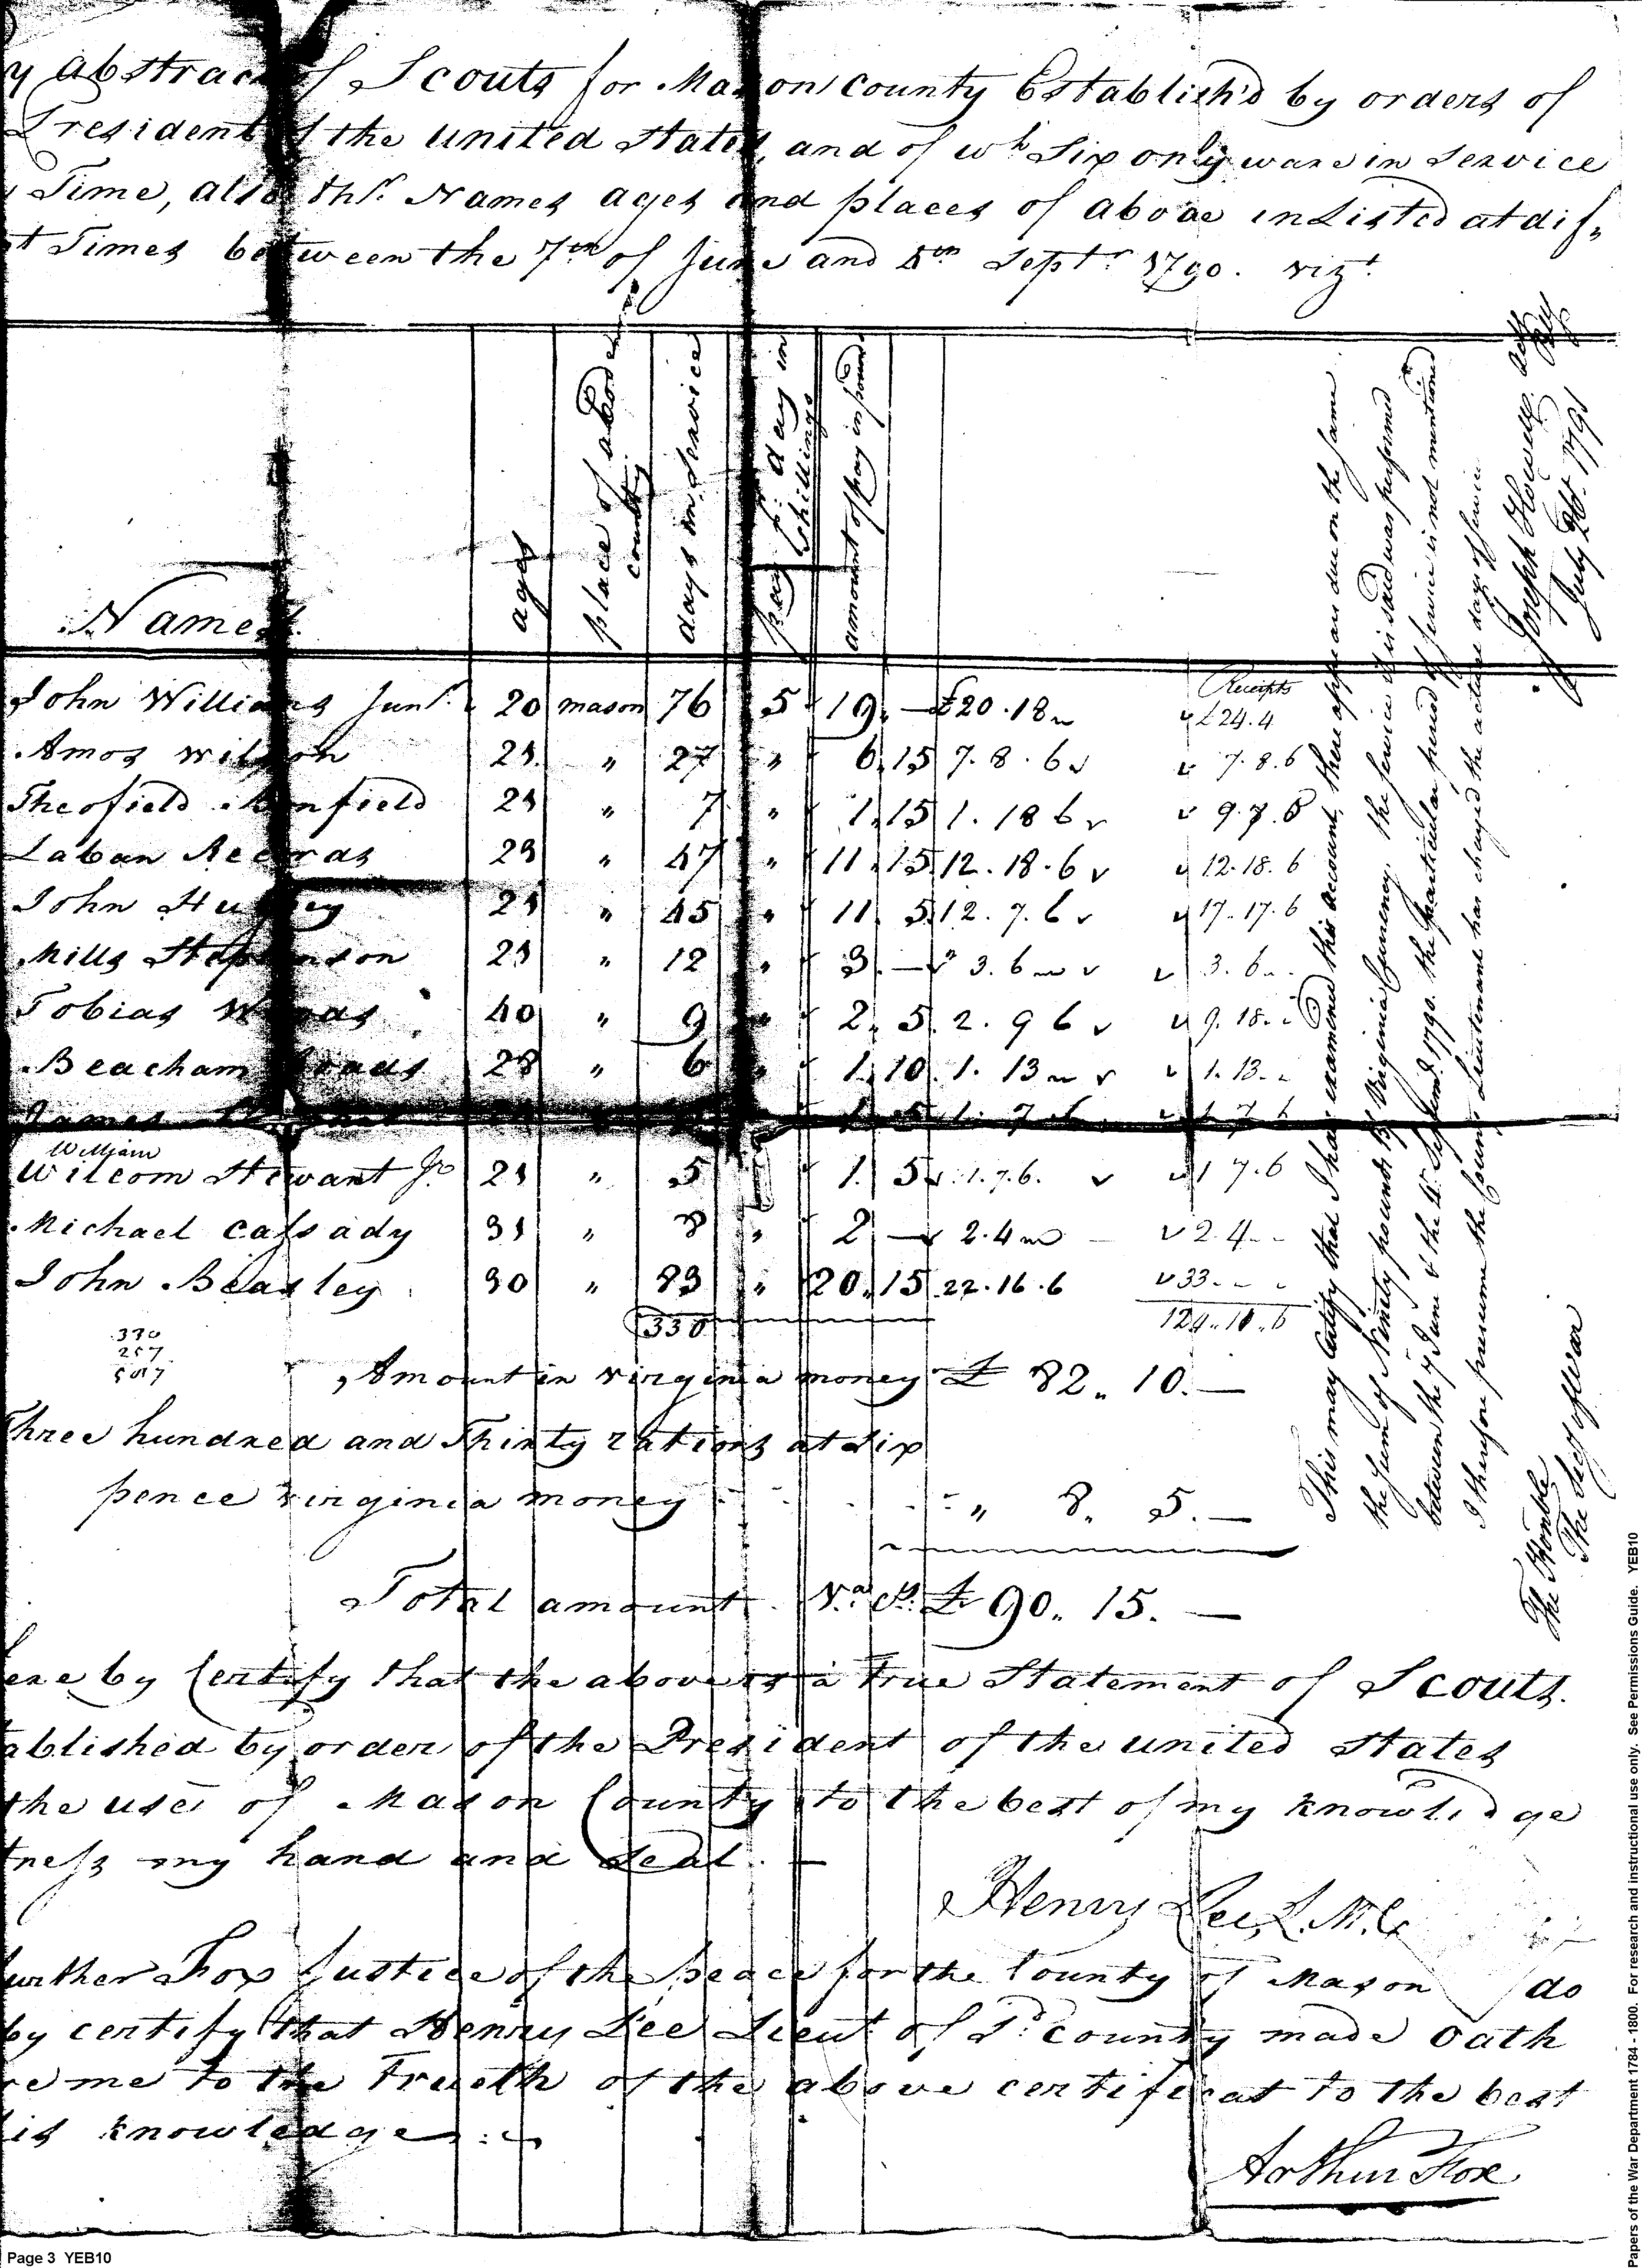 y Abstract of Scouts for Mason County Establish'd by orders of
President of the united States, and of wh Six only ware in Service
Time, also thr Names ages and places of aboae inListed at dif„
t Times between the 7th of June and 5th Septr 1790. vizt
Names
ages
place of abode in county
days in Service
pay pr day in Shillings
amount of pay in pounds
Receipts
John Williams Junr. 20 mason 76 5 19. — £20.18 £24.4
Amos Wilson 21 „ 27 „ 6.15 7.8.6 7.8.6
Theofield 21 „ 7 „ 1.15 1.18 6 9.7.6
Laban Records 23 „ 47 „ 11.15 12.18.6 12.18.6
John 21 „ 45 „ 11 5 12.7.6 17.17.6
Mills Stephenson 23 „ 12 „ 3. — 3.6 3.6
Tobias Woods 40 „ 9 „ 2. 5. 2.9 6 9.18.
Beacham Roads 28 „ 6 „ 1.10. 1.13 1.13.
James 1 5 1.7.6 1 7 6
William
Wilcom Stewart Jr 21 „ 5 1. 5 1.7.6. 1 7.6
Michael Cassady 31 „ 8 „ 2 — 2.4 2.4
John Beasley 30 „ 83 „ 20.15 22.16.6 33
330 124.10.6
330
257
587
Amount in virginia money £ 82„ 10.—
Three hundred and Thirty rations at Six
pence virginia money „ 8. 5.—
Total amount Va Cy. £ 90„ 15.—
ere by Certify that the above is a True Statement of Scouts.
ablished by order of the President of the united States
the use of Mason County to the best of my knowledge
tness my hand and Seal.
Henry Lee, L.M.C.
urther Fox Justice of the peace for the County of Mason do
by certify that Henry Lee Lieut of Sd County made Oath
re me to the Trueth of the above certificat to the best
is knowledge
Arthur Fox
This may certify that I have examined this account, there appears due on the same
the sum of Ninety pounds 15 Virginia Currency. the service it is said was performed
between the 7 June & the 4. Septemr. 1790. the particular period of service is not mentioned
I therefore presume the County Lieutenant has charged the actual days of service
Joseph Howell
July 20. 1791
The Honble
The Secy of War
Page 3 YEB10
Papers of the War Department 1784 - 1800. For research and instructional use only. See Permissions Guide. YEB10